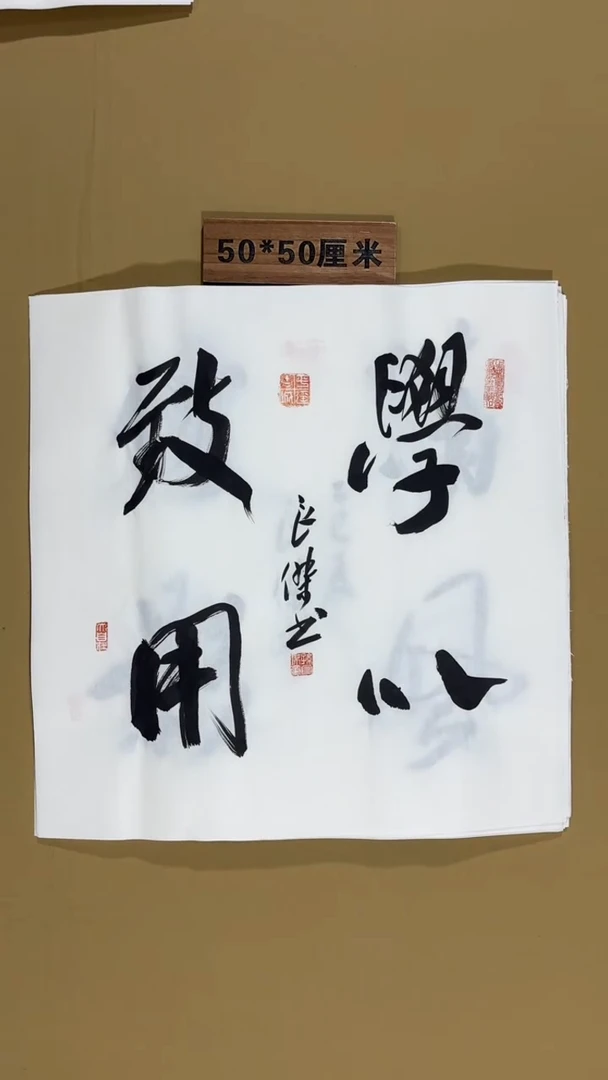 50*50厘米
學以
致用
良傑书